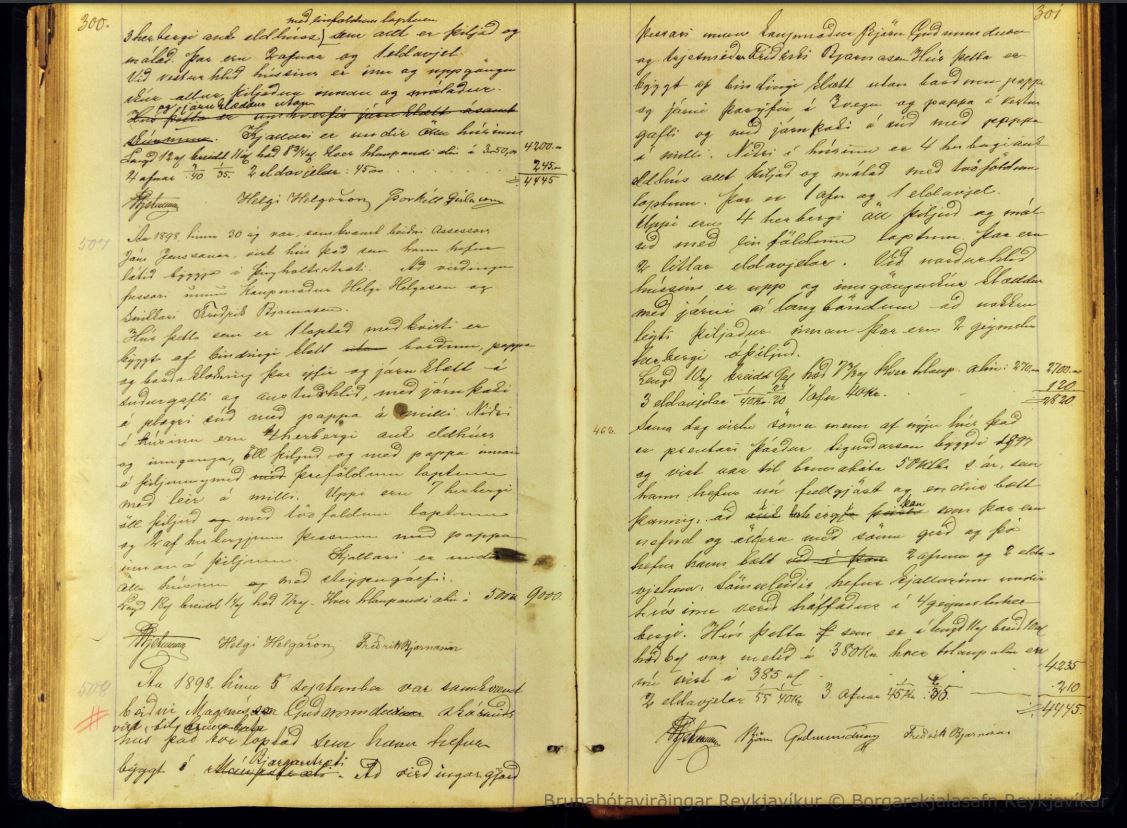 300.
með einföldum loptum
3 herbergi auk eldhúss, sem allt er þiljað og
málað. Þar eru 2 ofnar og 1 eldavjel.
Við vesturhlið hússins er inn og uppgöngu
skúr allur þiljaður innan og málaður.
og járnklæddur utan
Hús þetta er umhverfis járnklætt ásamt
skúrnum. Kjallari er undir öllu húsinu
Lengd 12 al breidd 11 al hæð 8 3/4 al. Hver hlaupandi alin á 350,00 4200.00
4 ofnar 2 eldavjelar 45.00 245.00
4445
Helgi Helgason Þorkell Gíslason
507
Ár 1898, hinn 30 ág var, samkvæmt beiðni Assessors
Jóns Jenssonar, virt hús það sem hann hefur
látið byggja í Þingholtsstræti. Að virðingu
þessari unnu Kaupmaður Helgi Helgason og
Snikkari Fredrik Bjarnason.
Hús þetta sem er 1 loptað með kvisti er
byggt af bindingi klætt utan borðum, pappa
og borðaklæðning þar yfir og járnklætt á
suðurgafli og austurhlið, með járnþaki
á plægri súð með pappa á milli. Niðri
í húsinu eru 4 herbergi auk eldhúss
og innganga, öll þiljuð og með pappa innan
á þiljum og með þreföldum loptum
með leir á milli. Uppi eru 7 herbergi
öll þiljuð og með tvöföldum loptum
og 2 af herbergjum þessum með pappa
innan á þiljum. Kjallari er undir
öllu húsinu og með steypugólfi.
Lengd 18 al breidd 14 al hæð al. Hver hlaupandi alin á 500 kr 9000.
Helgi Helgason Fredrik Bjarnason
508
Ár 1898, hinn 5 september var samkvæmt
beiðni Magnúsar Guðmundssonar skósmiðs
virt til brunabóta
hús það tvíloptað sem hann hefur
Bjargarstræti
byggt í. Að virðingargjörð
301
þessari unnu Kaupmaður Björn Guðmundsson
og trjesmiður Fredrik Bjarnason. Hús þetta er
byggt af bindingi klætt utan borðum pappa
og járni þar yfir á 3 vegu og pappa á vestur
gafli og með járnþaki á súð með pappa
í milli. Niðri í húsinu er 4 herbergi auk
eldhús allt þiljað og málað með tvöföldum
loptum. Þar er 1 ofn og 1 eldavjel.
Uppi eru 4 herbergi öll þiljuð og mál
uð með einföldum loptum. Þar eru
2 litlar eldavjelar. Við norðurhlið
hússins er upp og inngönguskúr klæddur
með járni á langböndum að nokkru
leyti þiljaður innan þar eru 2 geymslu
herbergi óþiljuð.
Lengd 10 al breidd 9 al hæð al Hver hlaup. alin: 270,00 2700.00
3 eldavjelar 1 ofn 40 kr. 120
2820
462.
Sama dag virtu sömu menn af nýju hús það
er prentari Þórður Sigurðsson byggði 1897
og virt var til brunabóta 50 okt. s. ár, sem
hann hefur nú fullgjört og endurbætt
þannig, að
hefur hann bætt við 2 ofnum og 2 elda-
vjelum, sömuleiðis hefur kjallarinn undir
húsinu verið hólfaður í 4 geymsluher
bergi. Hús þetta sem er í lengd 11 al breidd 10 al
hæð al var metið á 380 Kr hver hlaup. alin er
nú virt á 385 4235
2 eldavjelar 55 40 kr 3 ofnar 45 kr 210
4445.
Björn Guðmundsson Fredrik Bjarnason
Brunabótavirðingar Reykjavíkur © Borgarskjalasafn Reykjavíkur